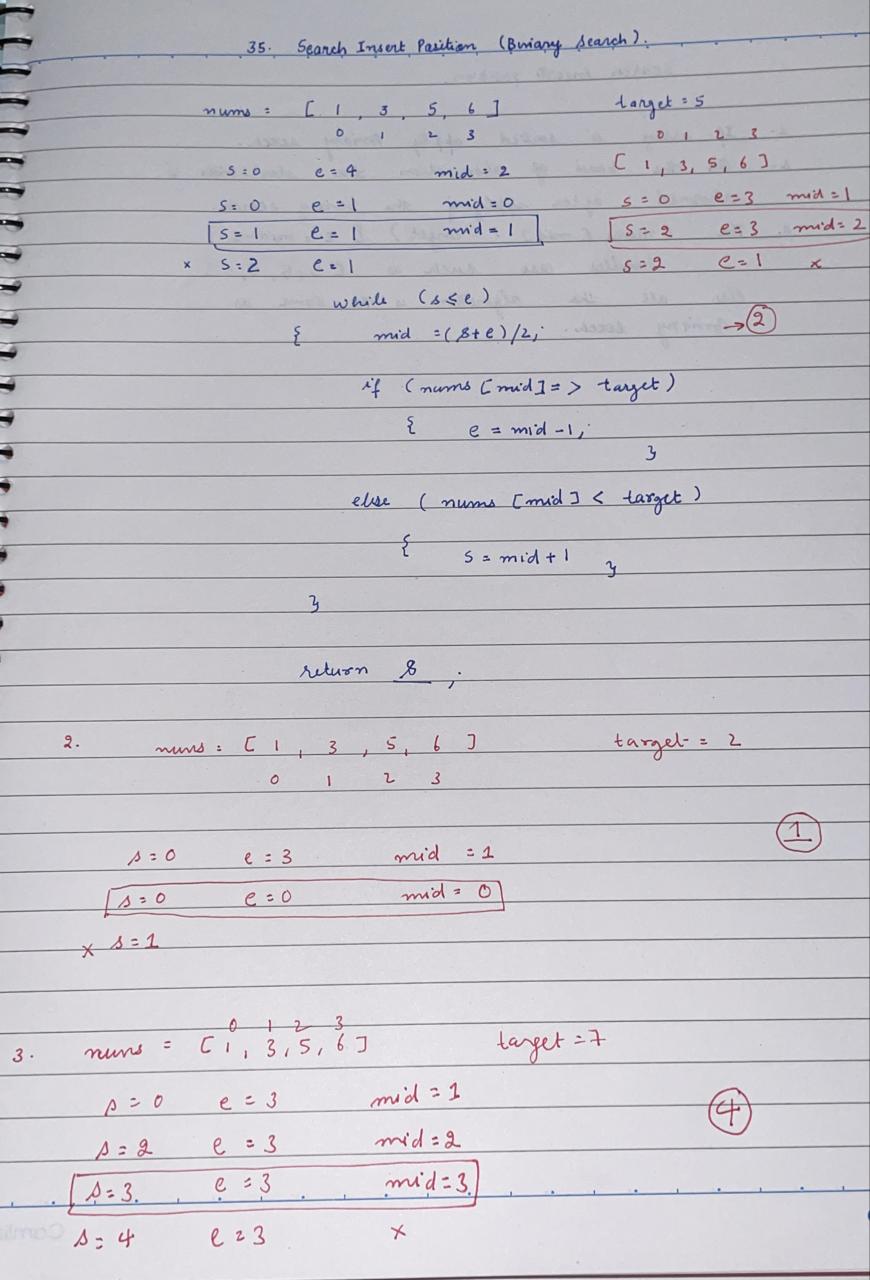 35. Search Insert Position (Binary Search).
nums = [ 1 , 3 , 5, 6 ] target = 5
0 1 2 3 0 1 2 3
s=0 e=4 mid=2 [ 1, 3, 5, 6 ]
s=0 e=1 mid=0 s=0 e=3 mid=1
s=1 e=1 mid=1 s=2 e=3 mid=2
x s=2 e=1 s=2 e=1 x
while (s≤e)
{ mid =(s+e)/2; →2
if (nums [mid] => target)
{ e = mid -1;
}
else ( nums [mid] < target)
{ s = mid+1 }
}
return s ;
2. nums = [ 1 , 3 , 5, 6 ] target = 2
0 1 2 3
1
s=0 e=3 mid =1
s=0 e=0 mid= 0
x s=1
0 1 2 3
3. nums = [ 1, 3, 5, 6 ] target =7
s=0 e=3 mid=1
4
s=2 e=3 mid=2
s=3. e=3 mid=3
s=4 e=3 x